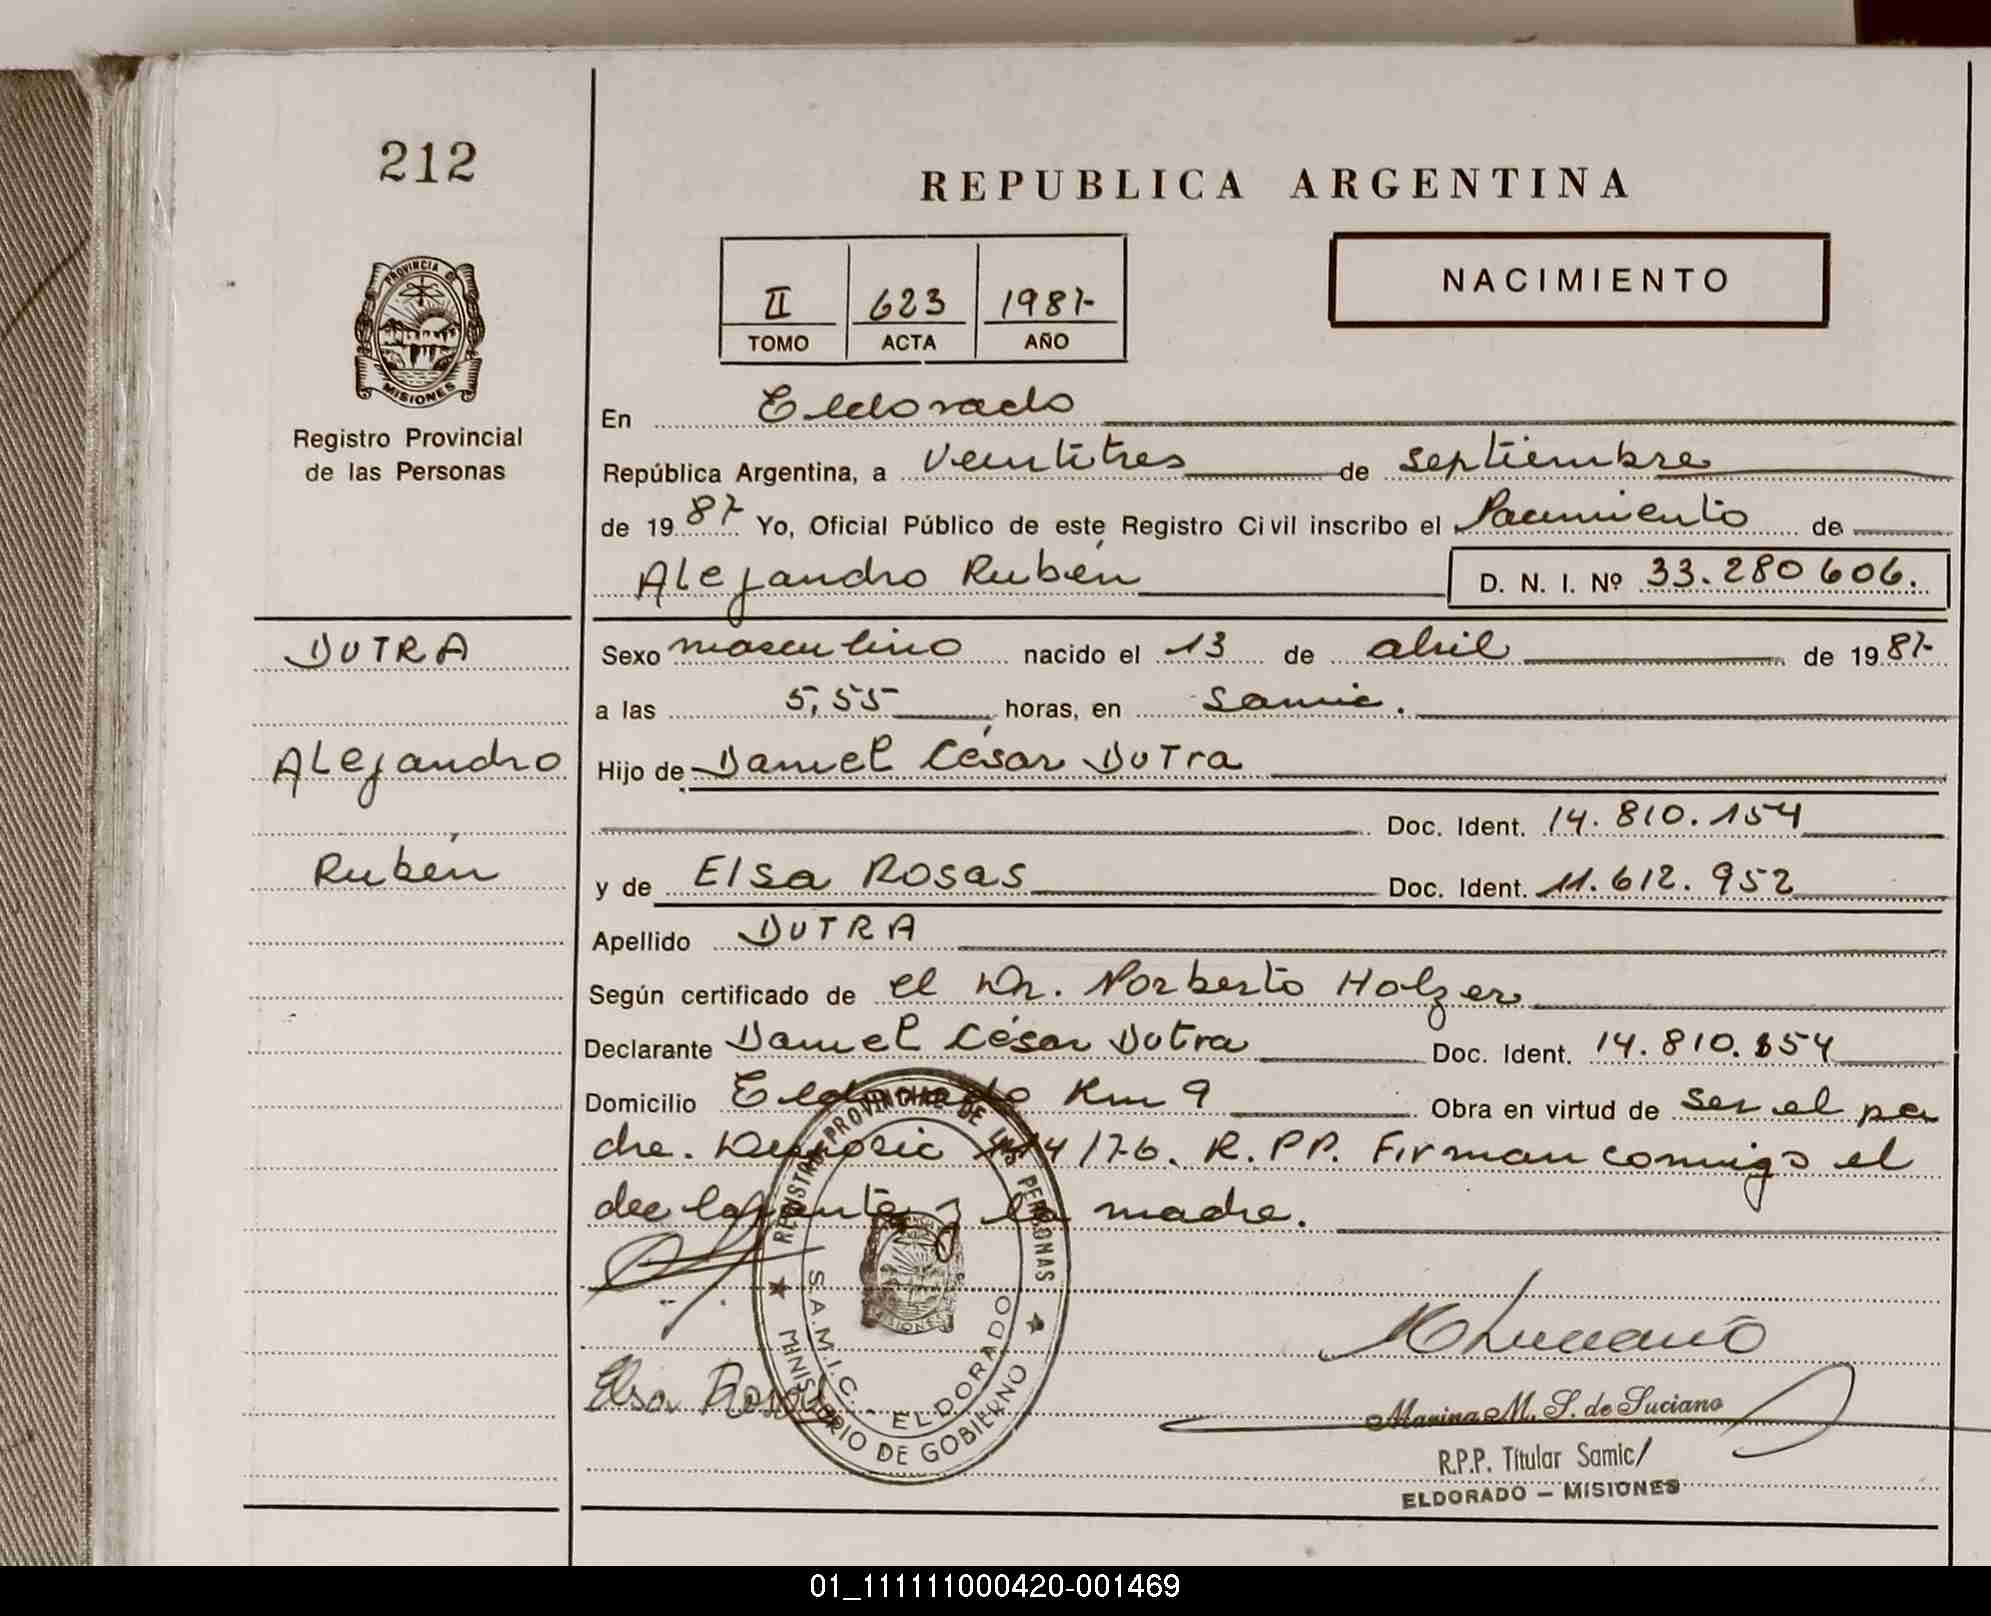 212
REPUBLICA ARGENTINA
NACIMIENTO
II 623 1987
TOMO ACTA AÑO
PROVINCIA DE
MISIONES
Registro Provincial
de las Personas
En Eldorado
República Argentina, a veintitres de septiembre
de 1987 Yo, Oficial Público de este Registro Civil inscribo el Nacimiento de
Alejandro Rubén D. N. I. Nº 33.280606.
DUTRA
Sexo masculino nacido el 13 de abril de 1987
a las 5,55 horas, en Samic.
Alejandro
Hijo de Daniel César Dutra
Doc. Ident. 14.810.154
Rubén
y de Elsa Rosas Doc. Ident. 11.612.952
Apellido DUTRA
Según certificado de el Dr. Norberto Holzer
Declarante Daniel César Dutra Doc. Ident. 14.810.154
Domicilio Eldorado Km 9 Obra en virtud de ser el pa
dre. 14/76. R.PP. Firman conmigo el
declarante y la madre.
REGISTRO PROVINCIAL DE LAS PERSONAS
S.A.M.I.C. - ELDORADO
MINISTERIO DE GOBIERNO
MISIONES
Elsa Rosas
Marina M. S. de Luciano
R.P.P. Titular Samic/
ELDORADO — MISIONES
01_111111000420-001469